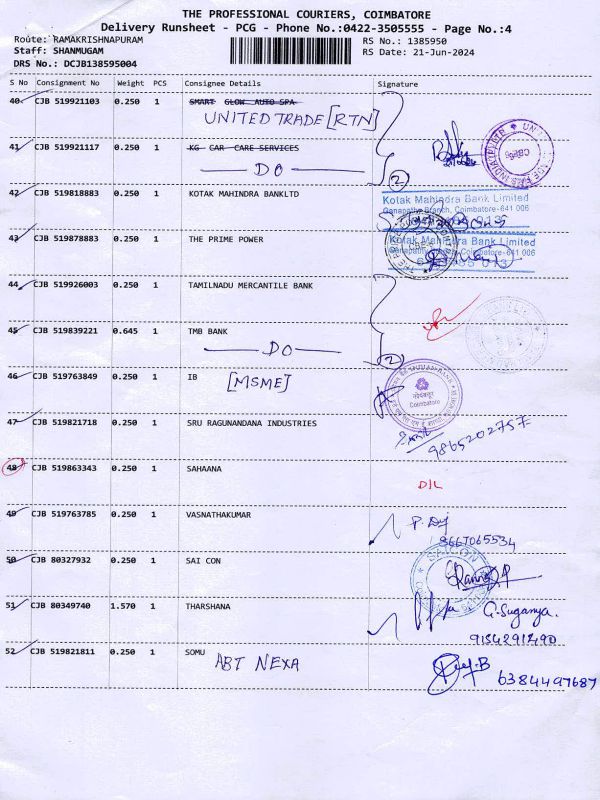 THE PROFESSIONAL COURIERS, COIMBATORE
Delivery Runsheet - PCG - Phone No.:0422-3505555 - Page No.:4
Route: RAMAKRISHNAPURAM
RS No.: 1385950
Staff: SHANMUGAM
RS Date: 21-Jun-2024
DRS No.: DCJB138595004
S No Consignment No Weight PCS Consignee Details Signature
40 CJB 519921103 0.250 1 SMART GLOW AUTO SPA
UNITED TRADE [RTN]
41 CJB 519921117 0.250 1 KG CAR CARE SERVICES
DO
(2)
42 CJB 519818883 0.250 1 KOTAK MAHINDRA BANKLTD
Kotak Mahindra Bank Limited
Ganapathy Branch, Coimbatore-641 006
43 CJB 519878883 0.250 1 THE PRIME POWER
Kotak Mahindra Bank Limited
44 CJB 519926003 0.250 1 TAMILNADU MERCANTILE BANK
45 CJB 519839221 0.645 1 TMB BANK
DO
(2)
46 CJB 519763849 0.250 1 IB
[MSME]
Coimbatore
47 CJB 519821718 0.250 1 SRU RAGUNANDANA INDUSTRIES
9865202757
48 CJB 519863343 0.250 1 SAHAANA
D/L
49 CJB 519763785 0.250 1 VASNATHAKUMAR
9667065534
50 CJB 80327932 0.250 1 SAI CON
SAICON
51 CJB 80349740 1.570 1 THARSHANA
G.Suganya.
9154291490
52 CJB 519821811 0.250 1 SOMU
ABT NEXA
6384497687